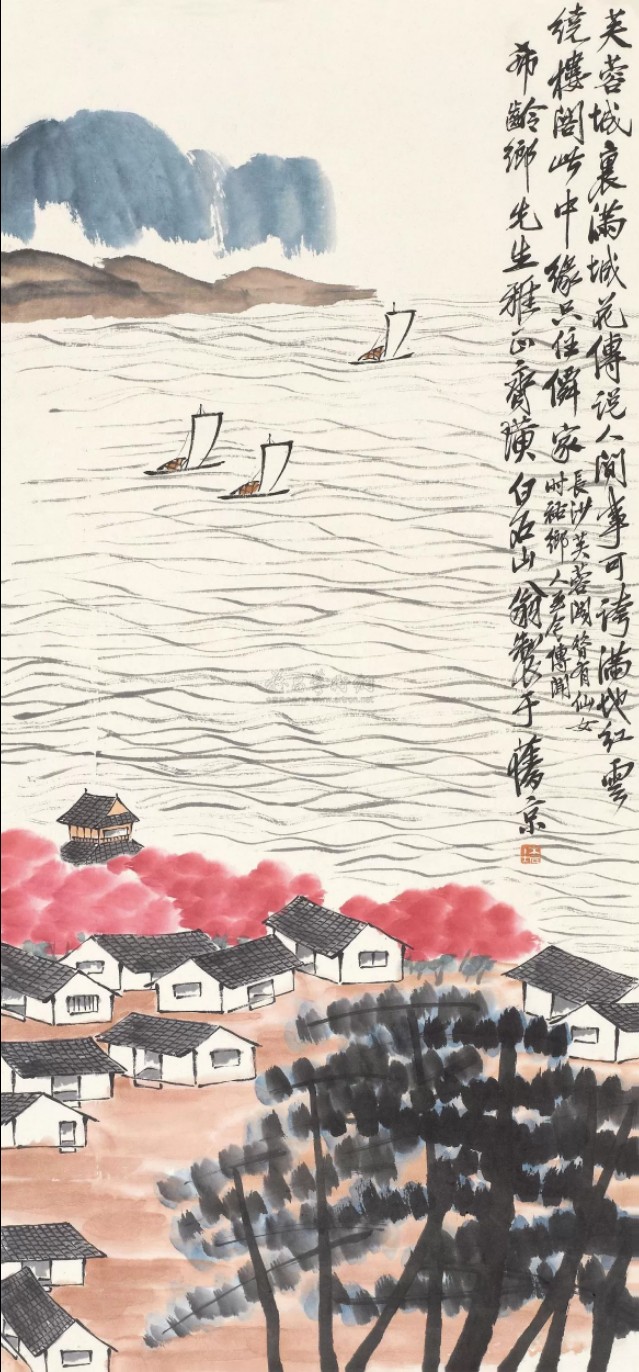 芙蓉城裏滿城花傳說人間事可誇滿地紅雲
繞樓閣此中緣只住儔家
長沙芙蓉閣昔有仙女
時鄉人
傳聞
希齡鄉先生雅正齊璜白石山翁製于舊京